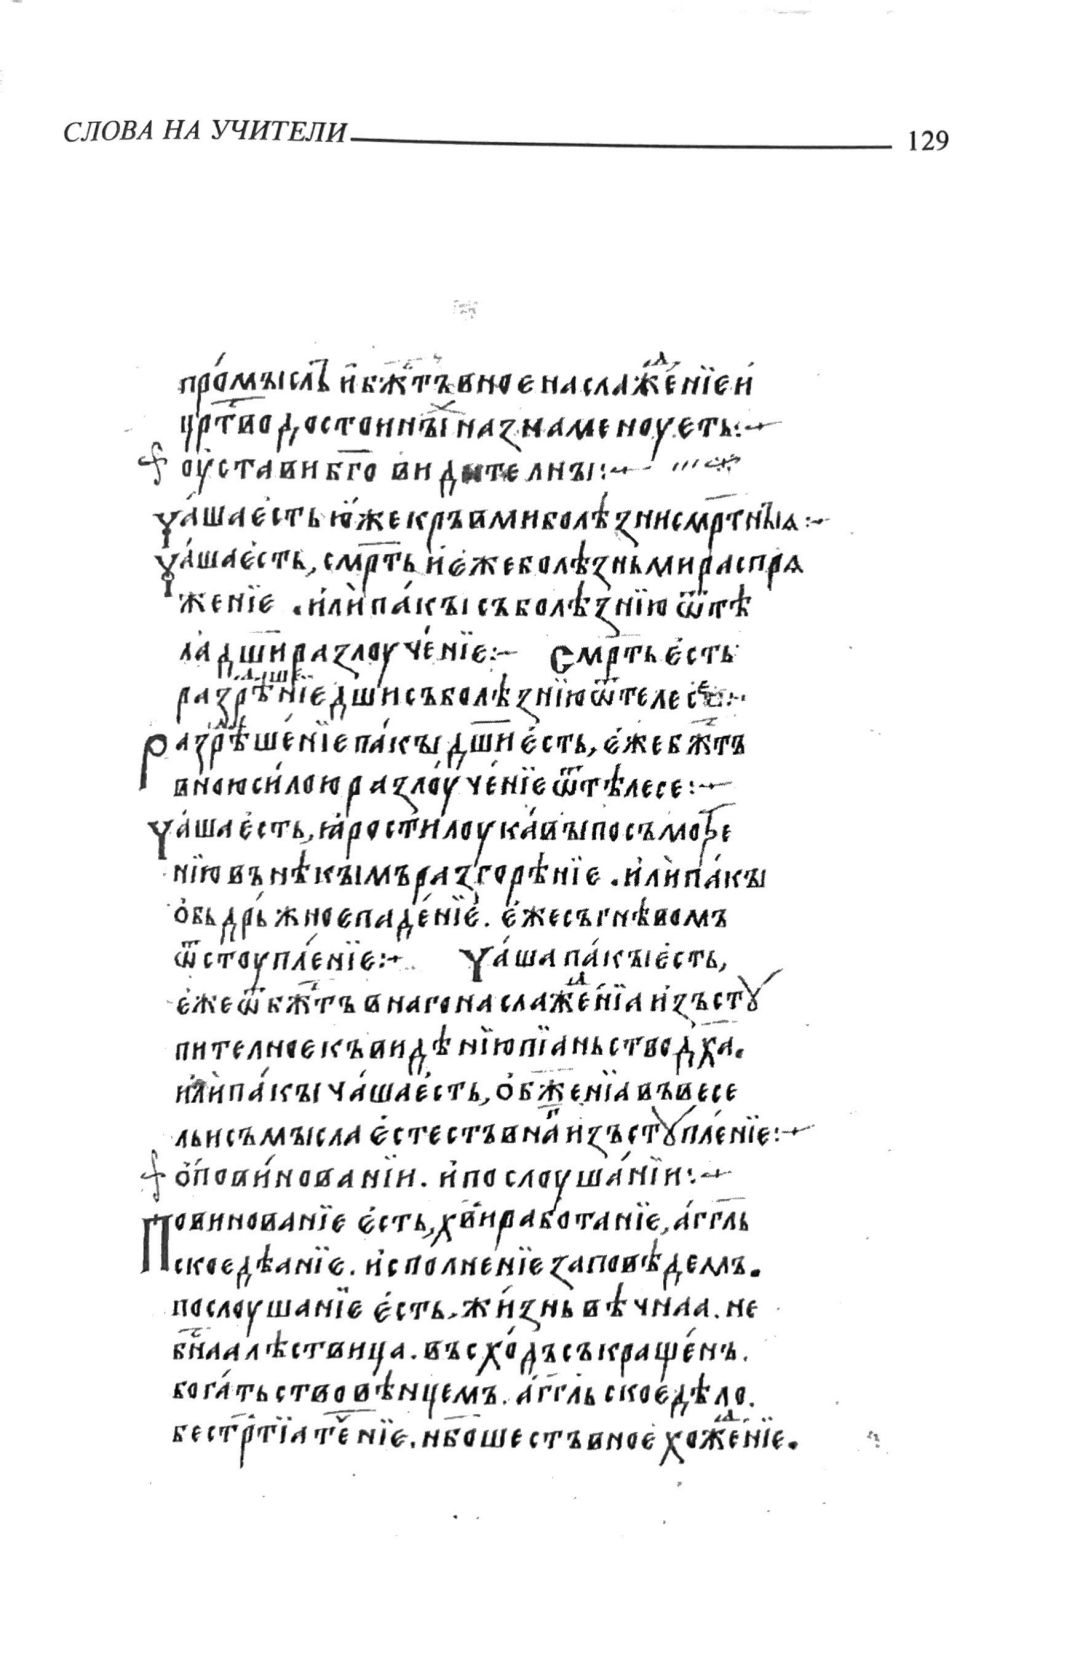 СЛОВА НА УЧИТЕЛИ 129
про́мыслъ и҆ бж҃тъвное наслаж́енїе и҆
цр҃тво достоинных назнаменоуеть:~
оу҆стави бг҃о видителны:~
ча́ша е҆сть ю҆же кръвми болѣзни смр҃тныѧ:~
ча́ша е҆сть, смр҃ть и҆ е҆же болѣзньми распрѧ
женїе . и҆лѝ па́кы съ болѣзнїю ѿ тѣ
ла дш҃и разлоуче́нїе:~ Смр҃ть е҆сть
разрѣ́нїе дш҃и съ болѣзнїю ѿ телесе:~
Разрѣше́нїе па́кы дш҃и е҆сть, е҆же бж҃тъ
вною си́лою разлоуче́нїе ѿ тѣлесе:~
Ча́ша е҆сть, ꙗ҆рости лоука́выѝ посъмотре
нїю въ нѣкымъ разгорѣнїе . и҆лѝ па́кы
о҆бьдрь́жное паде́нїе . е҆же съ гнѣвомъ
ѿстоупле́нїе:~ Ча́ша па́кы е҆сть,
е҆же ѿ бж҃тъвнаго наслажде́нїа и҆зъстꙋ
пителное къ видѣнїю пїаньство дх҃а.
и҆лѝ па́кы ча́ша е҆сть, о҆бж҃енїа въ весе
льи съмысла е҆стестъвнаа и҆зъстꙋпле́нїе:~
о҆ пови́нованїи . и҆ послоуша́нїи:~
Повинованїе е҆сть, хв҃и работанїе, а҆гг҃ль
ское дѣанїе . и҆сполненїе заповѣдемъ.
послоушанїе е҆сть, жи́знь вѣчнаа . не
бн҃аа лѣствица . въсхо́дъ съкраще́нъ .
бога́тьство вѣнцемъ . а҆гг҃льское дѣло .
бестр҃тїа те́нїе . нб҃ошестъвное хожде́нїе .